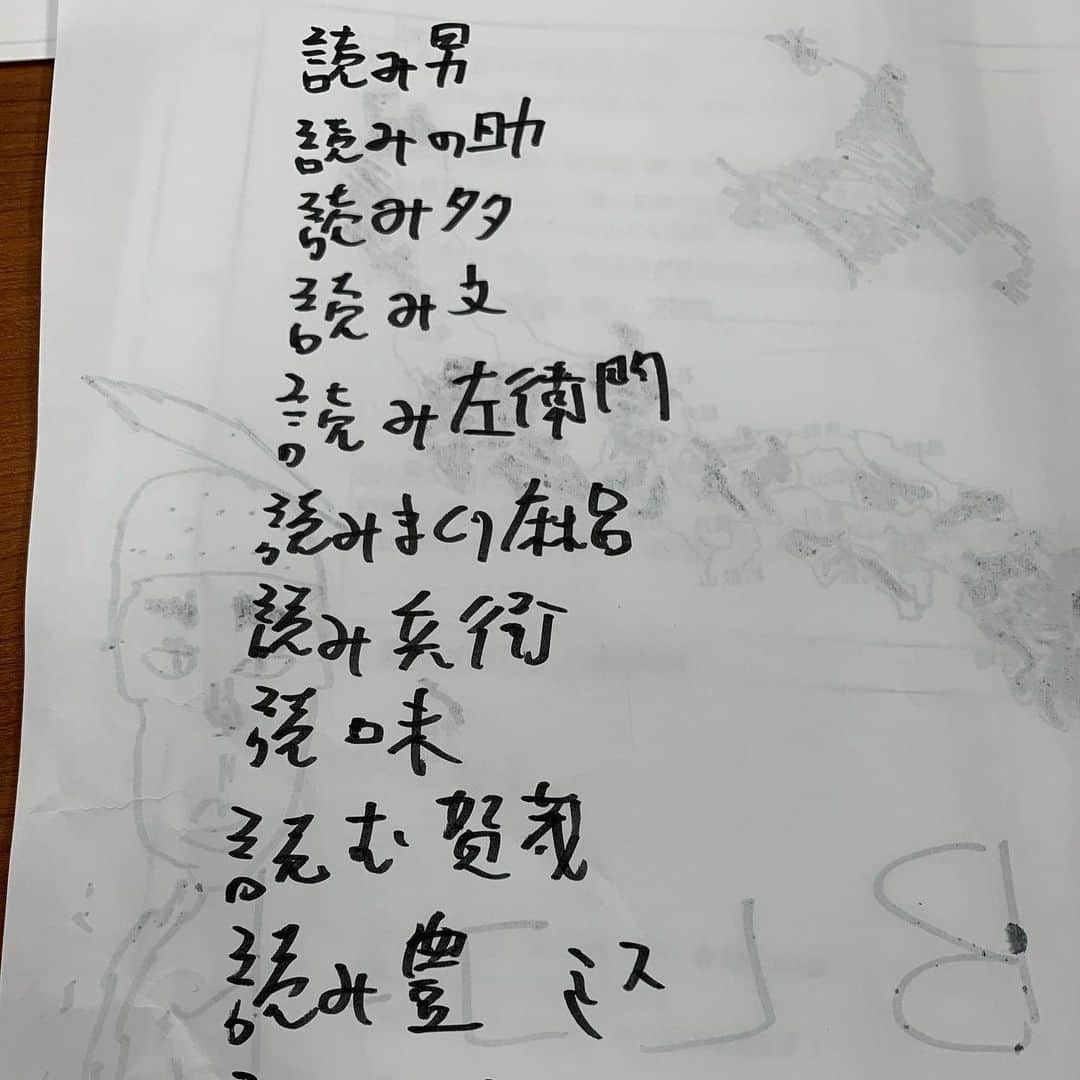 読み男
読みの助
読み多
読み文
読み左衛門
読みまくり麻呂
読み兵衛
読味
読む賀茂
読み豊 ミス